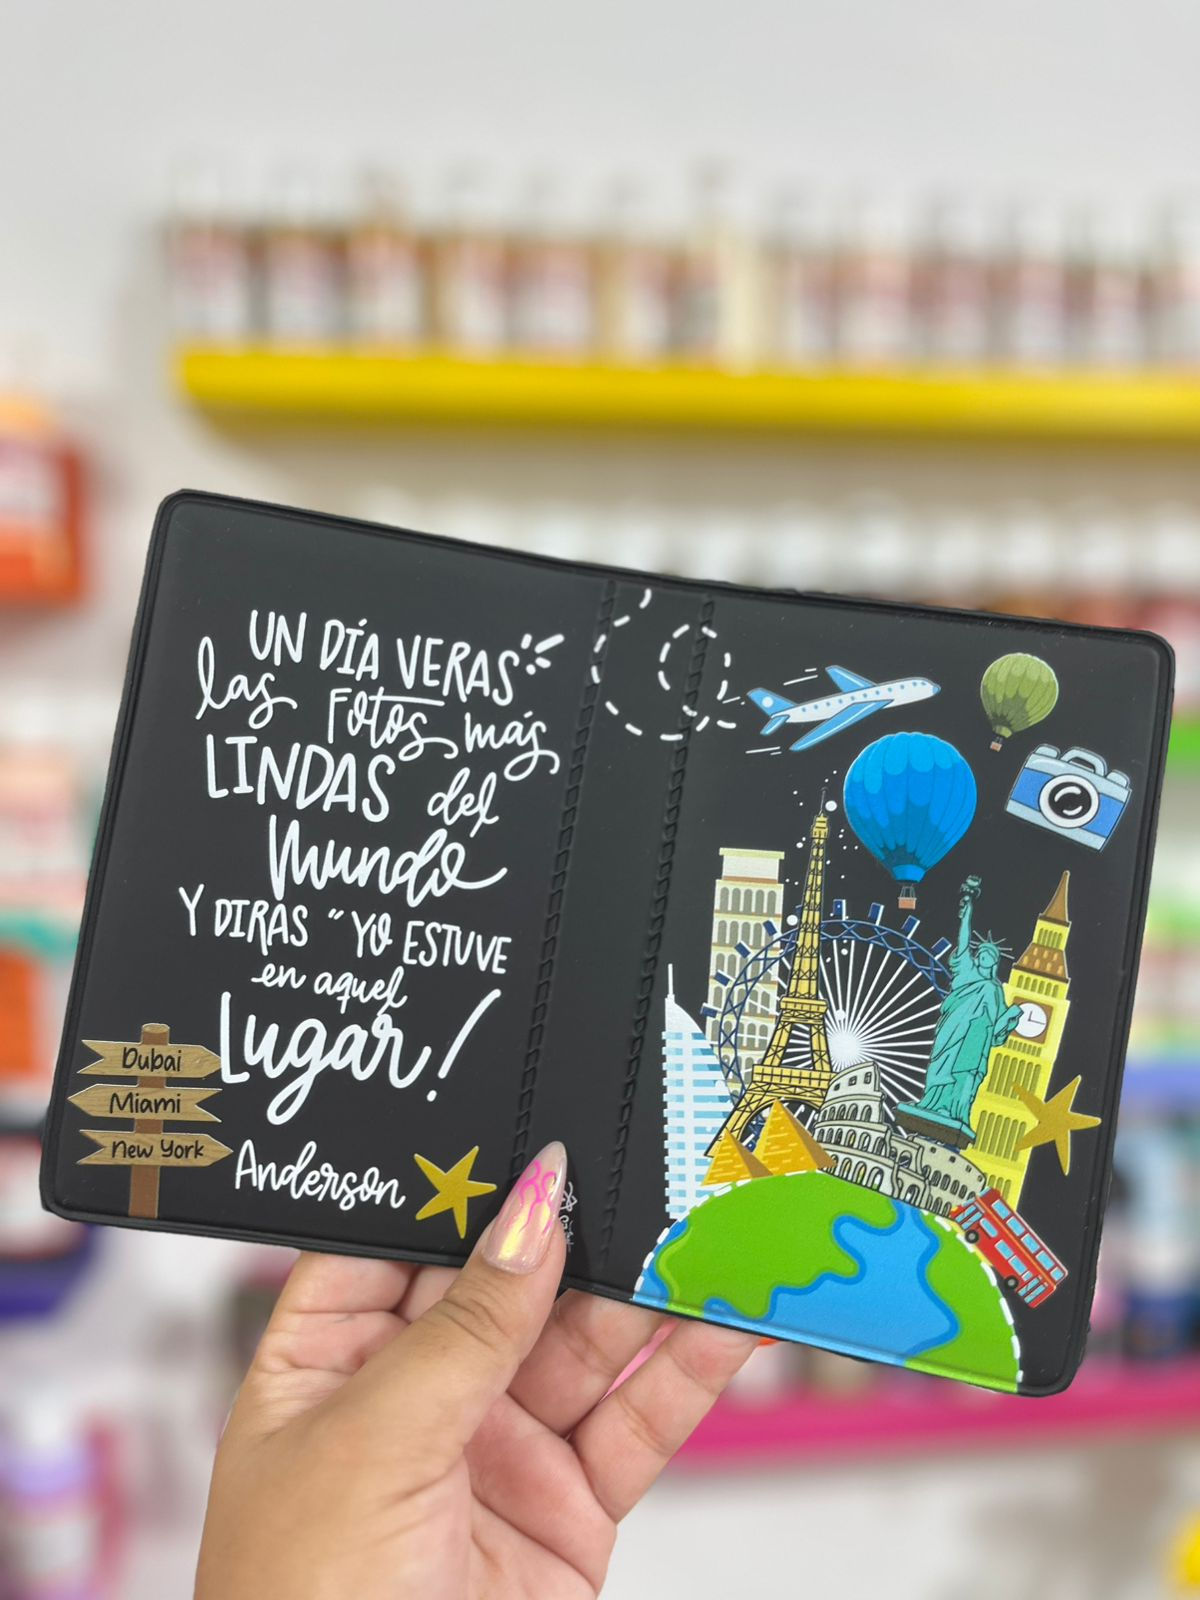 UN DÍA VERAS
las FOTOS más
LINDAS del
Mundo
Y DIRAS "YO ESTUVE
en aquel
Lugar!
Dubai
Miami
New York
Anderson